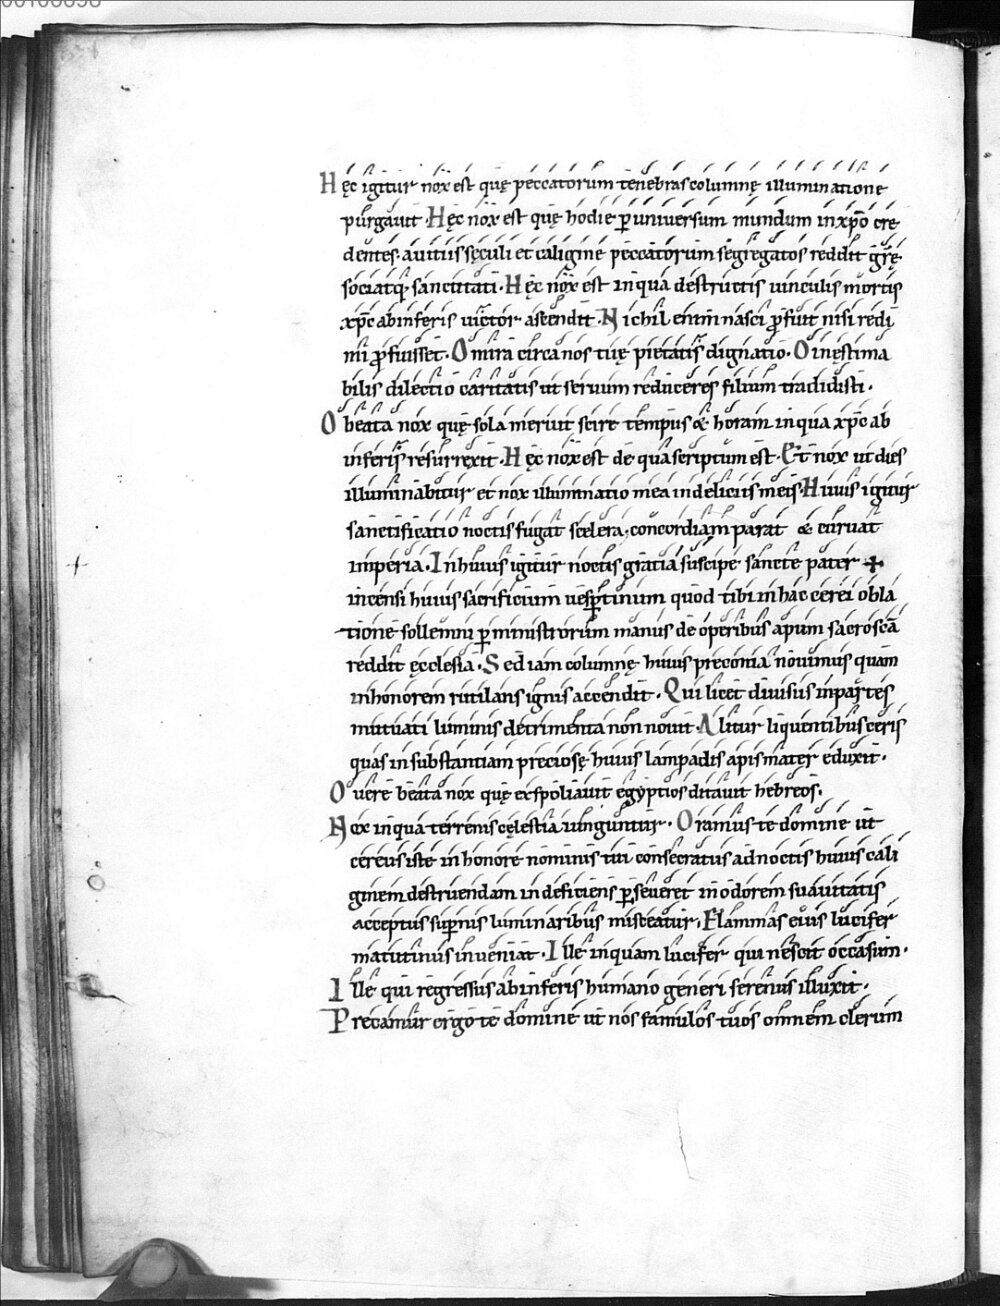 Hęc igitur nox est quę peccatorum tenebras columnę illuminatione
purgauit. Hęc nox est quę hodie ꝑ uniuersum mundum in xp̄o cre
dentes auitiis sęculi et caligine peccatorum segregatos reddit grę̄
sociatq; sanctitati. Hęc nox est in qua destructis uinculis mortis
xp̄c ab inferis uictor ascendit. Nichil enim nasci ꝓfuit nisi redi
mi ꝓfuisset. O mira circa nos tuę pietatis dignatio. O inęstima
bilis dilectio caritatis ut seruum redimeres filium tradidisti.
O beata nox quę sola meruit scire tempus & horam in qua xp̄c ab
inferis resurrexit. Hęc nox est de qua scriptum est. Et nox ut dies
illuminabitur et nox illuminatio mea in deliciis meis. Huius igitur
sanctificatio noctis fugat scelera, concordiam parat & curuat
imperia. In huius igitur noctis gratia suscipe sancte pater +
incensi huius sacrificium uesꝑtinum quod tibi in hac cerei obla
tione sollemni ꝑ ministrorum manus de operibus apum sacroscā
reddit ęcclesia. Sed iam columnę huius preconia nouimus quam
in honorem rutilans ignis accendit. Qui licet diuisus in partes
mutuati luminis detrimenta non nouit. Alitur liquentibus ceris
quas in substantiam preciosę huius lampadis apis mater eduxit.
O uere beata nox quę exspoliauit egyptios ditauit hebreos.
Nox in qua terrenis cęlestia iunguntur. Oramus te domine ut
cereus iste in honore nominis tui consecratus ad noctis huius cali
ginem destruendam indeficiens ꝑseueret in odorem suauitatis
acceptus suꝑnis luminaribus misceatur. Flammas eius lucifer
matutinus inueniat. Ille inquam lucifer qui nescit occasum.
Ille qui regressus ab inferis humano generi serenus illuxit.
Precamur ergo te domine ut nos famulos tuos omnem clerum